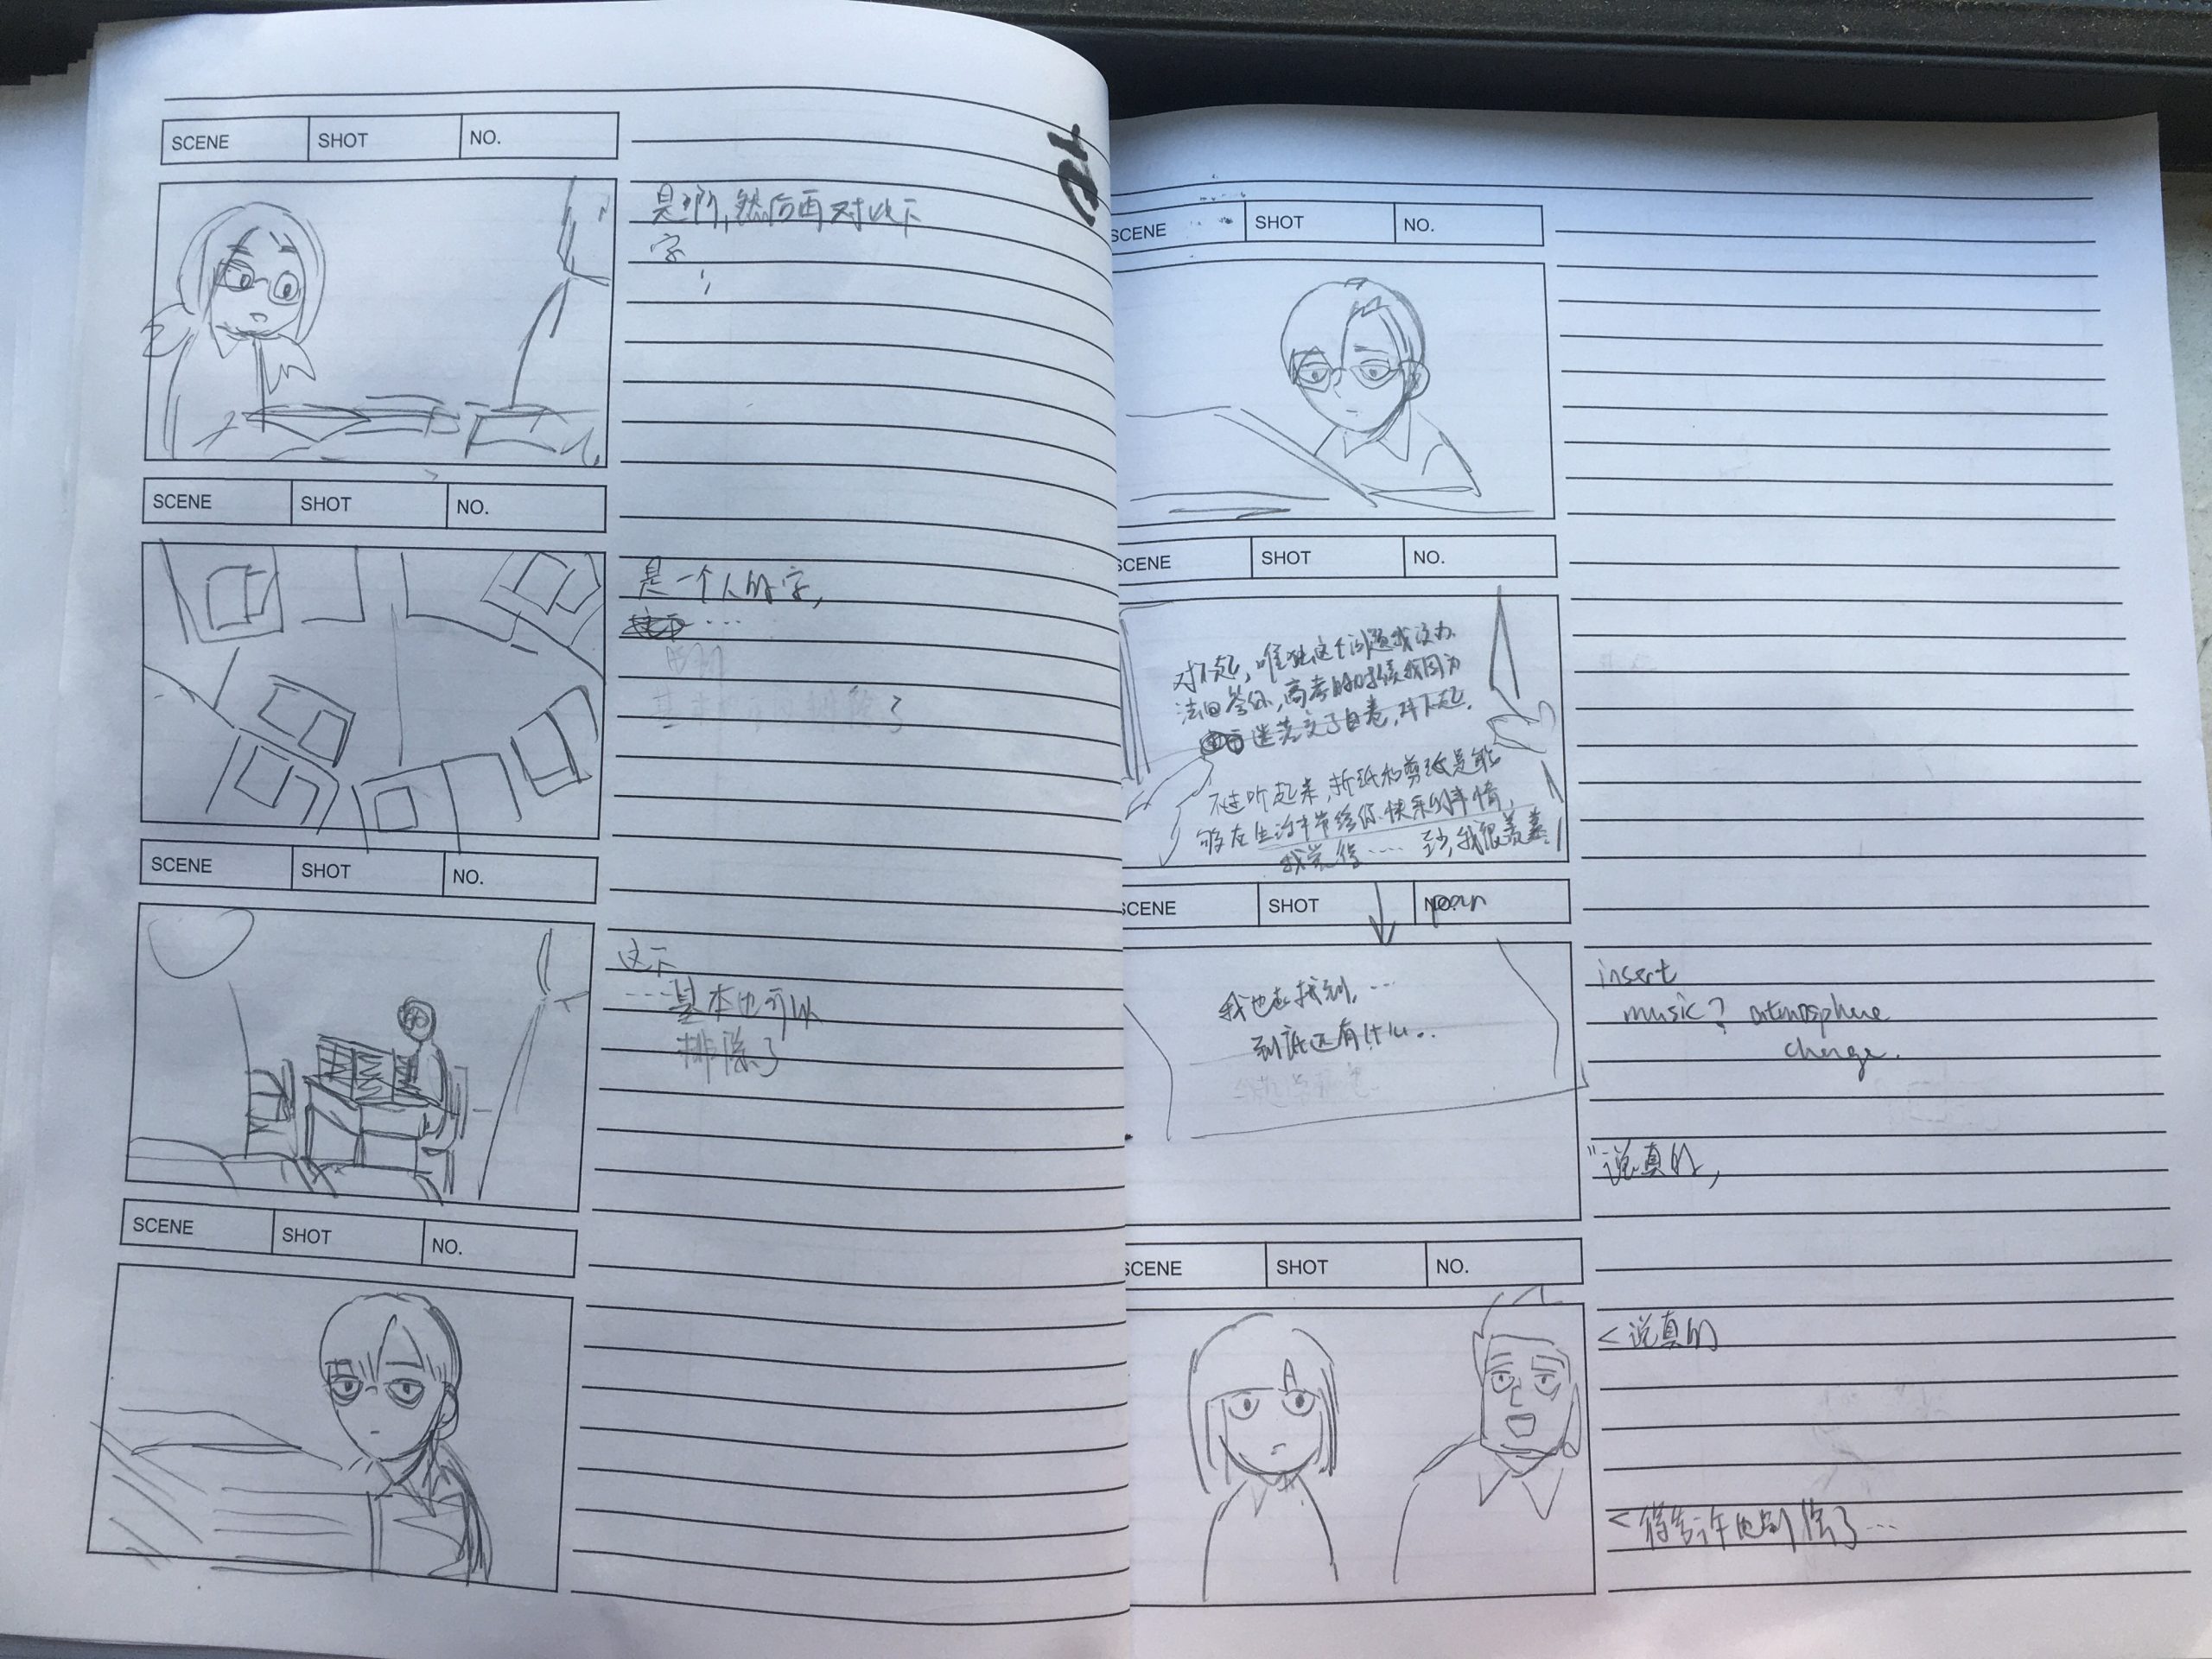 SCENE SHOT NO.
是啊,然后再对比下
字
SCENE SHOT NO.
是一个人的字,
...
SCENE SHOT NO.
这下
....基本也可以
排除了
SCENE SHOT NO.
SCENE SHOT NO.
SCENE SHOT NO.
对不起,唯独这个问题我没办
法回答你,高考的时候我因为
迷茫交了白卷,对不起.
不过听起来,折纸和剪纸是能
够在生活中带给你快乐的事情,
我觉得.... 至少,我很羡慕.
SCENE SHOT NO. pan
我也在找到,...
到底还有什么...
insert
music? atmosphere
change.
"说真的,
SCENE SHOT NO.
<说真的